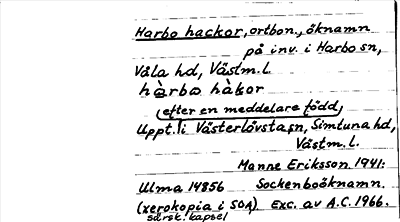 Harbo hackor, ortbon., öknamn
på inv. i Harbo sn,
Våla hd, Västm. l.
hàrbo hàkor
(efter en meddelare född
Uppt. i Västerlövsta sn, Simtuna hd,
Västm. l.
Manne Eriksson 1941.
Ulma 14856 Sockenboöknamn.
(xerokopia i SOA) Exc. av A.C. 1966.
särsk. kapsel